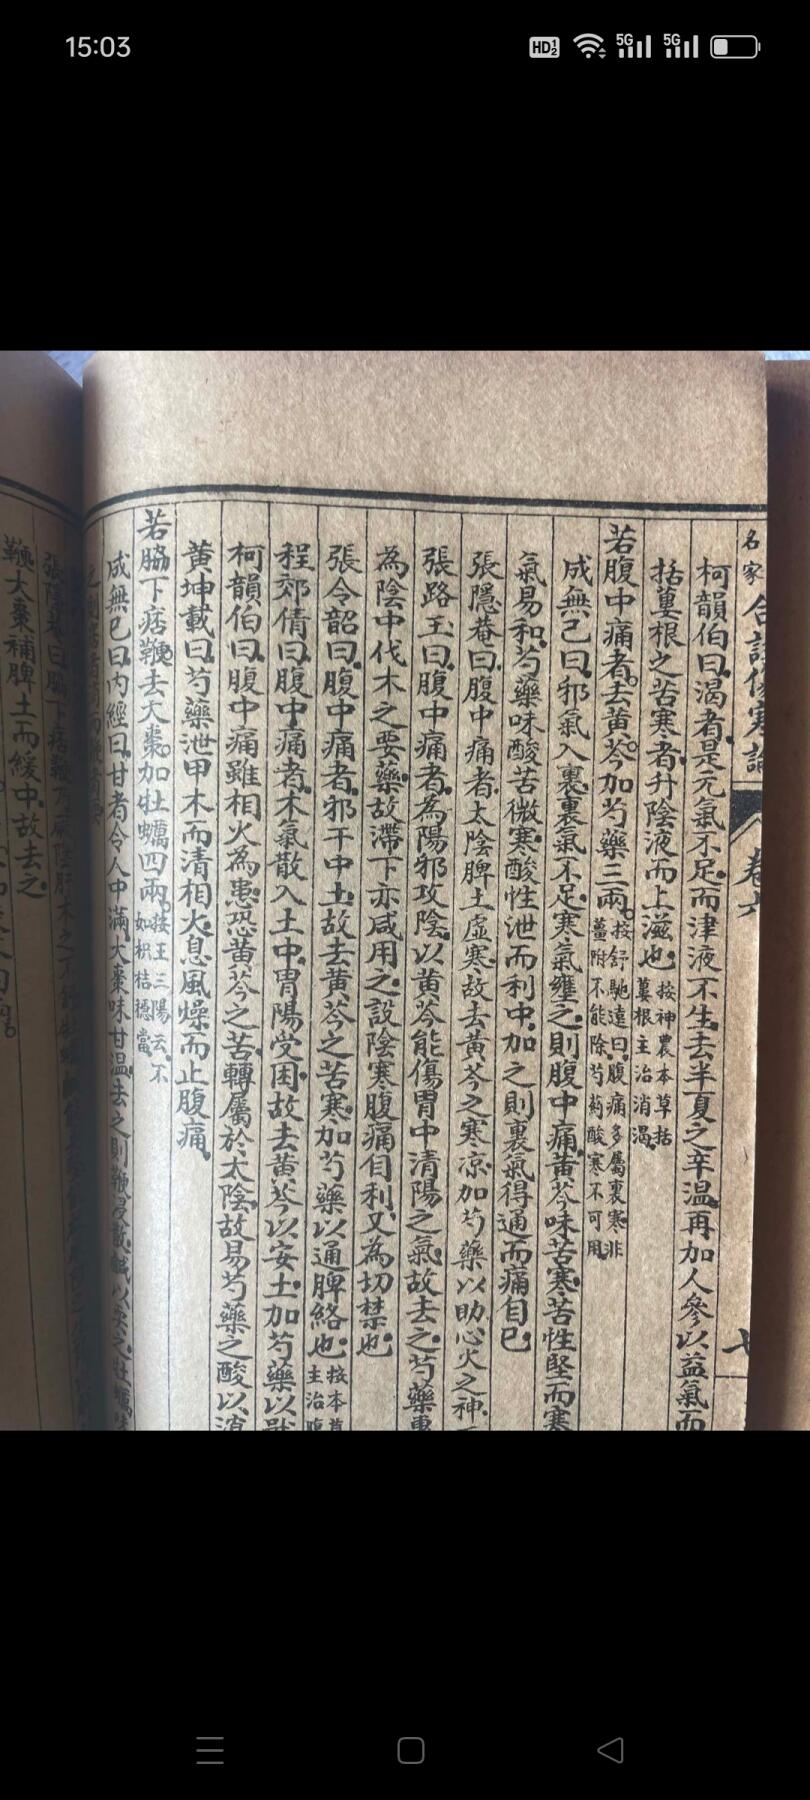 15:03
HD 1 2
5G
5G
名家合註傷寒論
卷六
七
柯韻伯曰渴者是元氣不足而津液不生去半夏之辛温再加人參以益氣而
括蔞根之苦寒者升陰液而上滋也按神農本草括
蔞根主治消渴
若腹中痛者去黃芩加芍藥三兩按舒馳遠曰腹痛多屬裏寒非
薑附不能除芍葯酸寒不可用
成無己曰邪氣入裏裏氣不足寒氣壅之則腹中痛黃芩味苦寒苦性堅而寒
氣易和芍藥味酸苦微寒酸性泄而利中加之則裏氣得通而痛自已
張隱菴曰腹中痛者太陰脾土虛寒故去黃芩之寒凉加芍藥以助心火之神
張路玉曰腹中痛者為陽邪攻陰以黃芩能傷胃中清陽之氣故去之芍藥專
為陰中伐木之要藥故滯下亦咸用之設陰寒腹痛自利又為切禁也
張令韶曰腹中痛者邪干中土故去黃芩之苦寒加芍藥以通脾絡也按本草
主治腹
程郊倩曰腹中痛者木氣散入土中胃陽受困故去黃芩以安土加芍藥以
柯韻伯曰腹中痛雖相火為患恐黃芩之苦轉屬於太陰故易芍藥之酸以
黃坤載曰芍藥泄甲木而清相火息風燥而止腹痛
若脇下痞鞭去大棗加牡蠣四兩按王三陽云不
如枳桔穩當
成無已曰內經曰甘者令人中滿大棗味甘温去之則鞭浸散鹹以耎之牡蠣味
張隱菴曰脇下痞鞭乃厥陰肝木之
鞭大棗補脾土而緩中故去之